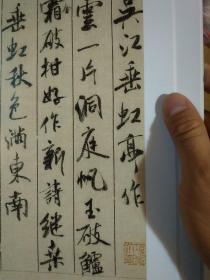 吳江垂虹亭作
雲一片洞庭帆玉破鱸
霜破柑好作新詩継桑
垂虹秋色滿東南